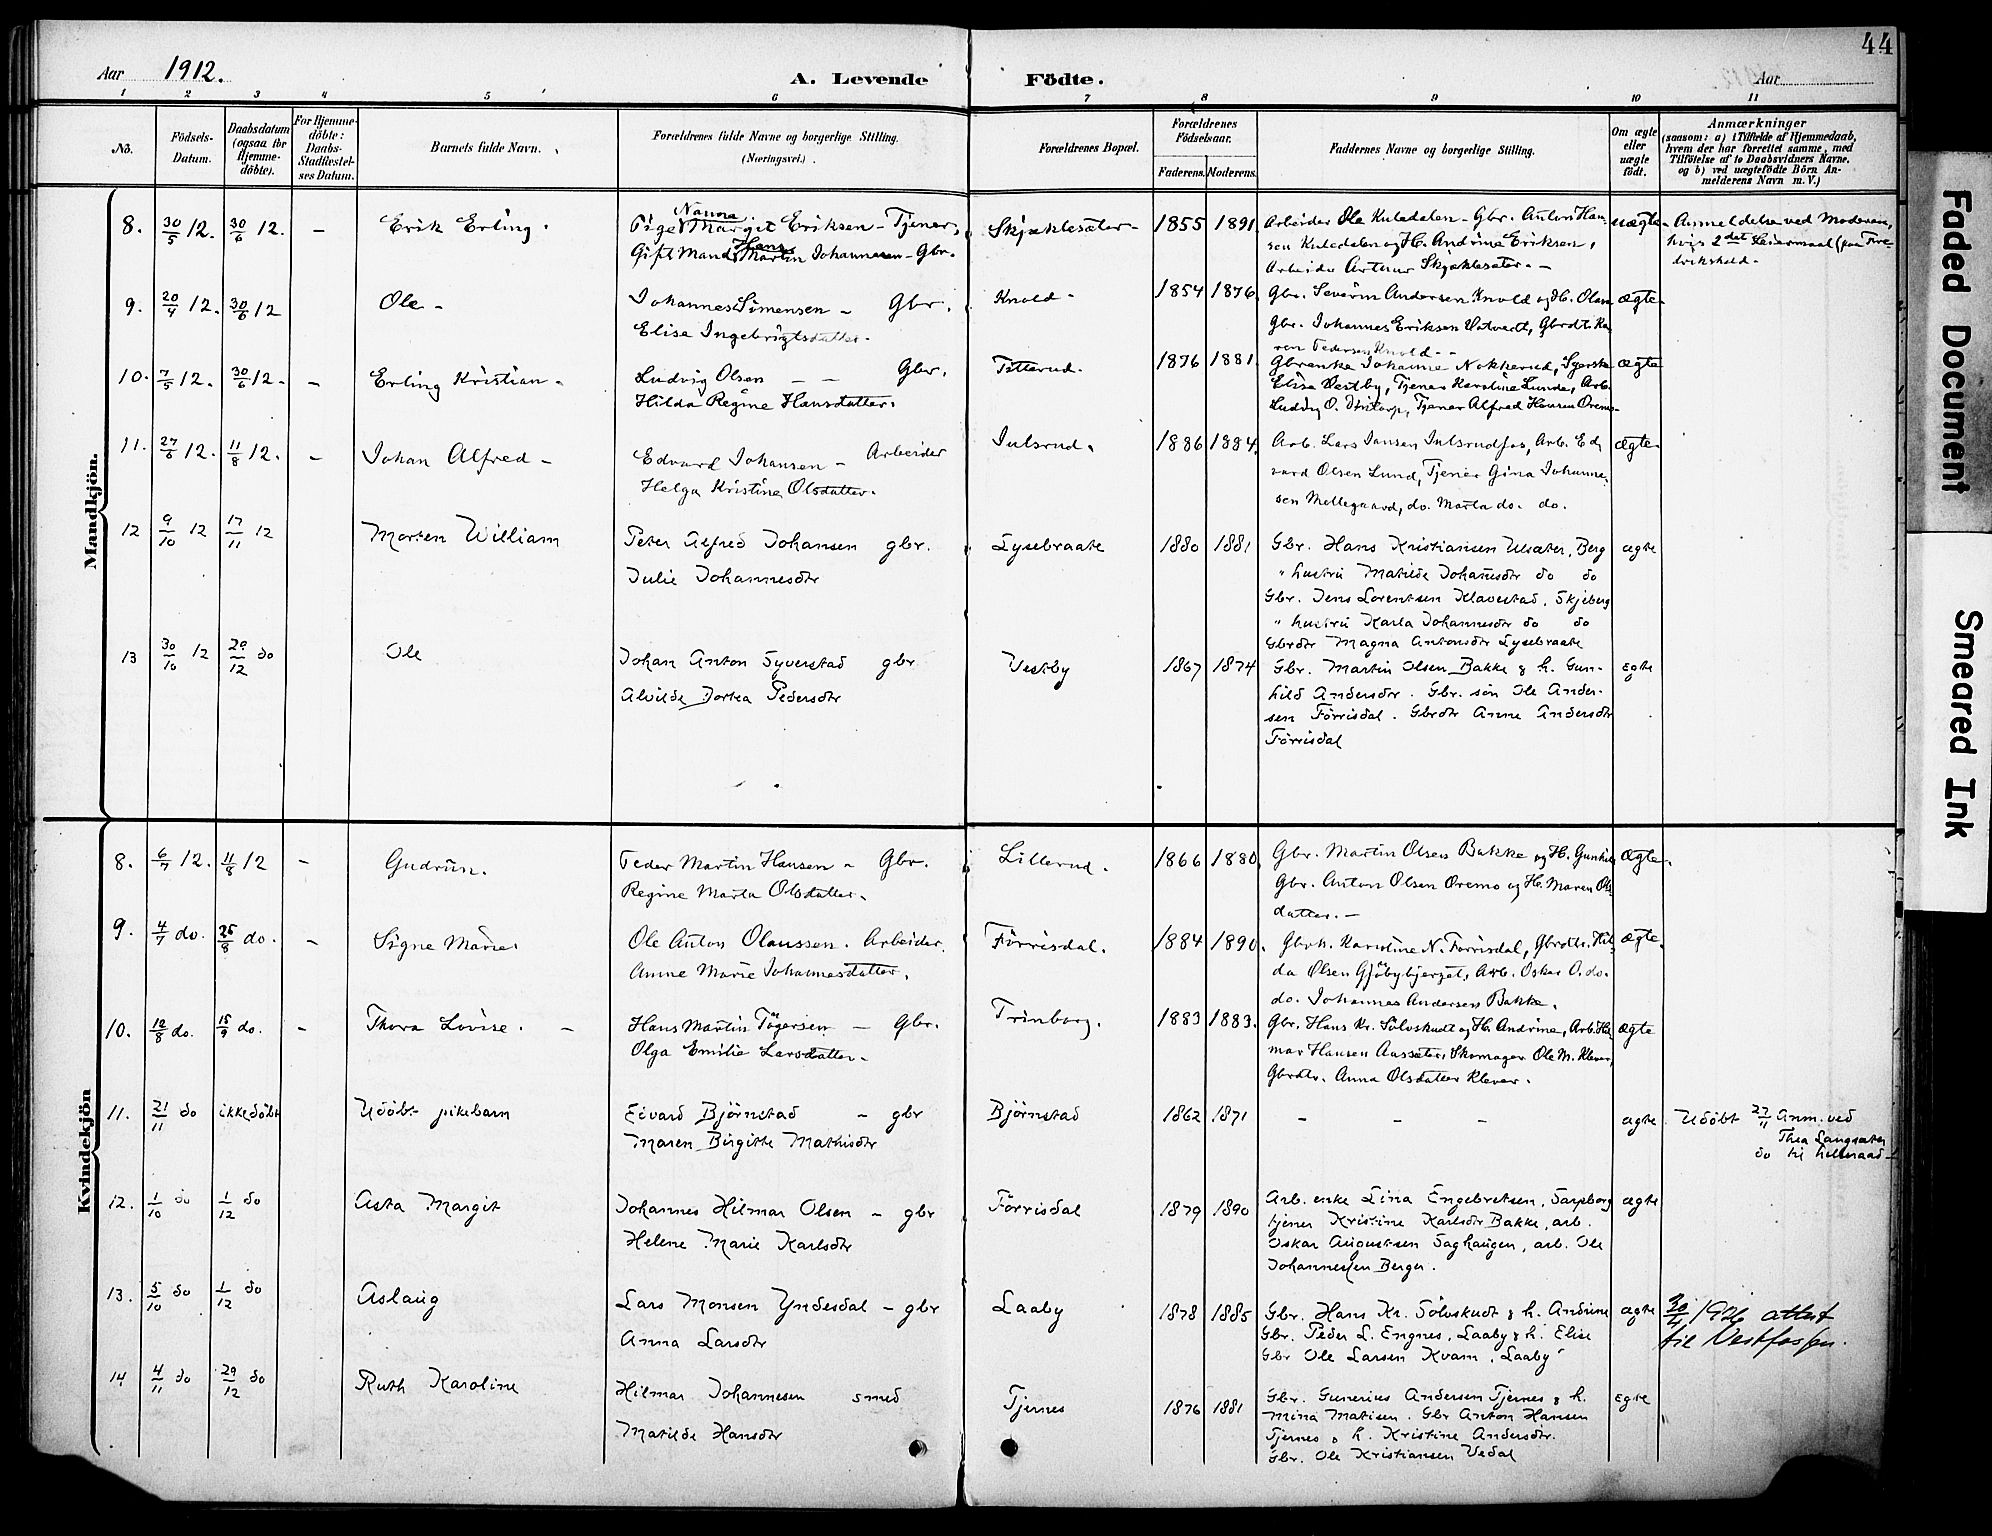 44
Aar 1912. A. Levende Födte. Aar
1 2 3 4 5 6 7 8 9 10 11
No. Födsels-Datum. Daabsdatum (ogsaa for Hjemme-döbte). For Hjemme-döbte: Daabs-Stadfæstel-ses Datum. Barnets fulde Navn. Forældrenes fulde Navne og borgerlige Stilling. (Næringsvei.) Forældrenes Bopæl. Forældrenes Födselsaar. Faderens. Moderens. Faddernes Navne og borgerlige Stilling. Om ægte eller uægte födt. Anmærkninger (saasom: a) i Tilfælde af Hjemmedaab, hvem der har forrettet samme, med Tilföielse af to Daabsvidners Navne, og b) ved uægtefödte Börn An-melderens Navn m. V.)
Mandkjön.
8. 30/5 12. 30/6 12. – Erik Erling. Pige Nanna Margit Eriksen – Tjener, Skjæklesæter – 1855 1891 Arbeider Ole Kuledalen – Gbr. Anton Han- uægte – Anmeldelse ved Moderen,
Gift Mand Hans Martin Johannesen – Gbr. sen Kuledalen og H. Andrine Eriksen, hvis 2det Leiermaal (paa Fre-
Arbeider Arthur Skjæklesæter. – drikshald.
9. 20/4 12. 30/6 12 Ole – Johannes Simensen – Gbr. Knold – 1854 1876 Gbr. Severin Andersen Knold og H. Olava ægte –
Elise Ingebrigtsdatter. Gbr. Johannes Eriksen Vatvedt, Gbrdtr. Ka-
ren Pedersen Knold –
10. 7/5 12. 30/6 12. – Erling Kristian – Ludvig Olsen – – Gbr. Titterud. 1876 1881. Gbrenke Johanne Nokkerud, Syerske ægte
Hilda Regine Hansdatter. Elise Vestby, Tjener Karoline Lunde, Arb.
Ludvig O. , Tjener Alfred Hansen Oremo –
11. 27/6 12. 11/8 12. – Johan Alfred – Edvard Johansen – Arbeider Julsrud. 1886 1884. Arb. Lars Jansen Julsrudfos, Arb. Ed- ægte –
Helga Kristine Olsdatter. vard Olsen Lund, Tjener Gina Johanne-
sen Mellegaard, do. Marta do. do.
12 9/10 12 17/11 12 Morten William Peter Alfred Johansen gbr. Lysebraate 1880 1881 Gbr. Hans Kristiansen Ulsæter, Berg ægte
Julie Johannesdtr " hustru Matilde Johañesdtr do do
Gbr. Jens Lorentsen Klavestad, Skjeberg
" hustru Karla Johannesdtr do do
Gbrdtr Magna Antonsdtr Lysebraate
13 30/10 12 29/12 do Ole Johan Anton Syverstad gbr Vestby 1867 1874 Gbr. Martin Olsen Bakke & h. Gun- Egte
Alvilde Dortea Pedersdtr hild Andersdtr. Gbr. sön Ole Ander-
sen Förrisdal. Gbrdtr Anne Andersdtr
Förrisdal
Kvindekjön
8. 6/7 12. 11/8 12 – Gudrun. Peder Martin Hansen – Gbr. Lillerud. 1866 1880 Gbr. Martin Olsen Bakke og H. Gunhild, Ægte.
Regine Marta Olsdatter. Gbr. Anton Olsen Oremo og H. Maren Ols-
datter. –
9. 4/7 do. 25/8 do. – Signe Marie. Ole Anton Olaussen. Arbeider. Förrisdal. 1884 1890. Gbrk. Karoline N. Förrisdal, Gbrdtr. Hil- Ægte.
Anne Marie Johannesdatter. da Olsen Gjöbybjerget, Arb. Oskar O. do.
do. Johannes Andersen Bakke.
10. 10/8 do. 15/9 do. – Thora Lovise. – Hans Martin Tögersen – Gbr. Trinborg. 1883 1883. Gbr. Hans Kr. Sölvskudt og H. Andrine, Arb. Hil- Ægte
Olga Emilie Larsdatter. mar Hansen Aussæter, Skomager Ole M. Klever,
Gbrdtr. Anna Olsdatter Klever.
11. 21/11 do ikke döbt Udöbt pikebarn Eivard Björnstad – gbr Björnstad 1862 1871 – – – ægte Udöbt 27/11 Anm. ved
Maren Birgitte Mathisdtr Thea Langsæter
do til
12. 1/10 do 1/12 do Asta Margit Johannes Hilmar Olsen – gbr Förrisdal 1879 1890 Arb. enke Lina Engebretsen, Sarpborg ægte
Helene Marie Karlsdtr tjener Kristine Karlsdtr Bakke, arb.
Oskar Augustsen Saghaugen, arb. Ole
Johannessen Berger.
13. 5/10 do 1/12 do Aslaug Lars Monsen Yndesdal – gbr Laaby 1878 1885 Gbr. Hans Kr. Sölvskudt & h. Andrine ægte 30/4 1926 attest
Anna Larsdtr Gbr. Peder L. Engnes, Laaby & h. Elise til Vestfossen.
Gbr Ole Larsen Kvam, Laaby
14 4/11 do 29/12 do Ruth Karoline Hilmar Johannesen smed Tjernes 1876 1881 Gbr. Gunerius Andersen Tjernes & h. Egte
Matilde Hansdtr Mina Matisen. Gbr Anton Hansen
Tjernes & h. Kristine Andersdtr.
Gbr. Ole Kristiansen Vedal
Faded Document
Smeared Ink